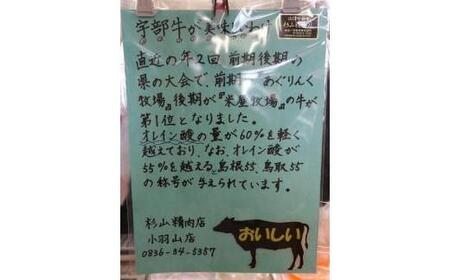 宇部牛が美味しいわけ
直近の年2回、前期後期の
県の大会で、前期『あぐりんく
牧場』後期が『米屋牧場』の牛が
第1位となりました。
オレイン酸の量が60%を軽く
越えており、なお、オレイン酸が
55%を越えると島根55、鳥取55
の称号が与えられています。
杉山精肉店
小羽山店
0836-34-5357
おいしい